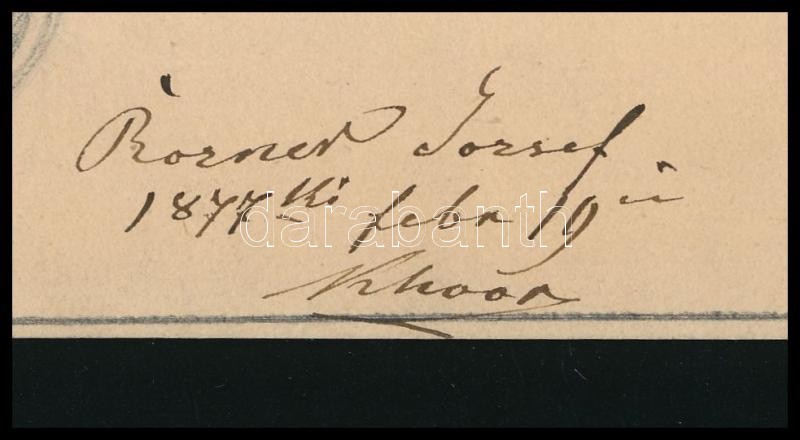 Rorner Jozsef
1877ki febr 19én
darabanth